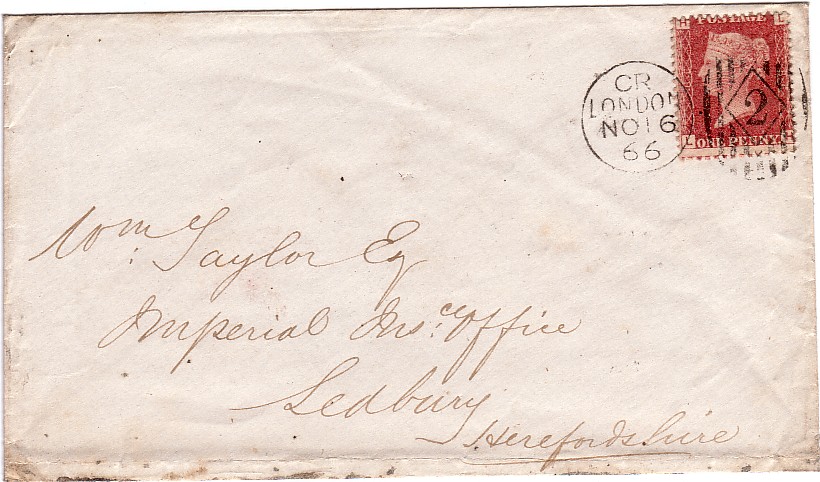 CR
LONDON
NO 16
66
2
Wm Taylor Esq
Imperial Insce: Office
Ledbury
Herefordshire